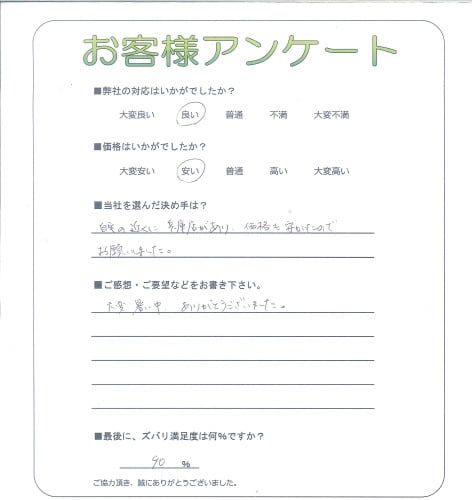 お客様アンケート
■弊社の対応はいかがでしたか？
大変良い 良い 普通 不満 大変不満
■価格はいかがでしたか？
大変安い 安い 普通 高い 大変高い
■当社を選んだ決め手は？
自宅の近くに 兵庫店があり、価格も安かったので
お願いしました。
■ご感想・ご要望などをお書き下さい。
大変 暑い中、ありがとうございました。
■最後に、ズバリ満足度は何%ですか？
90 %
ご協力頂き、誠にありがとうございました。